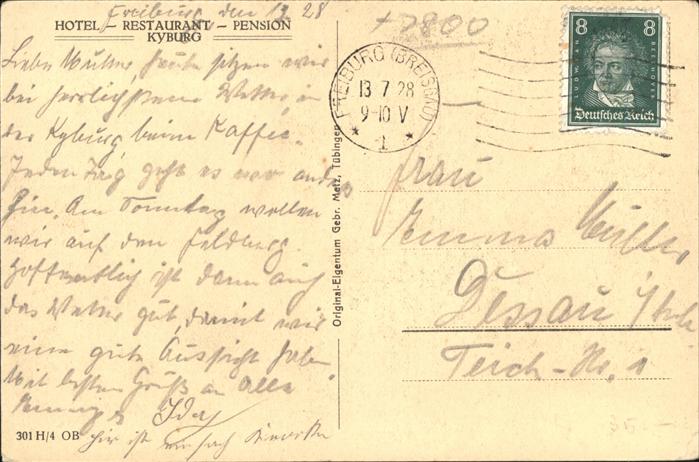 Freiburg den 12. 28
HOTEL – RESTAURANT – PENSION
KYBURG
Liebe Mutter, heute sitzen wir
bei herrlichstem Wetter in
der Kyburg beim Kaffee.
Jeden Tag geht es wo anders
hin. Am Sonntag wollen
wir auf den Feldberg.
Hoffentlich ist dann auch
das Wetter gut, damit wir
eine gute Aussicht haben
Mit besten Gruß an alle
Ida
hier ist einfach
301 H/4 OB
Original-Eigentum Gebr. Metz, Tübingen
+7800
FREIBURG (BREISGAU)
13 7 28
9-10 V
* 1 *
8 8
LUDW. VAN BEETHOVEN
Deutsches Reich
Frau
Emma Müller
Dessau
Teich-No. 1